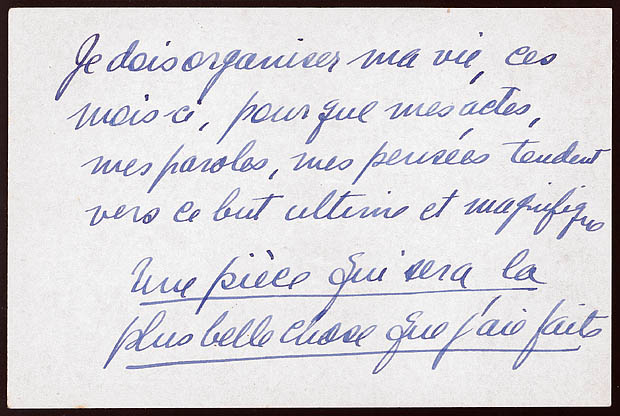 Je dois organiser ma vie, ces
mois-ci, pour que mes actes,
mes paroles, mes pensées tendent
vers ce but ultime et magnifique
Une pièce qui sera la
plus belle chose que j'aie faite